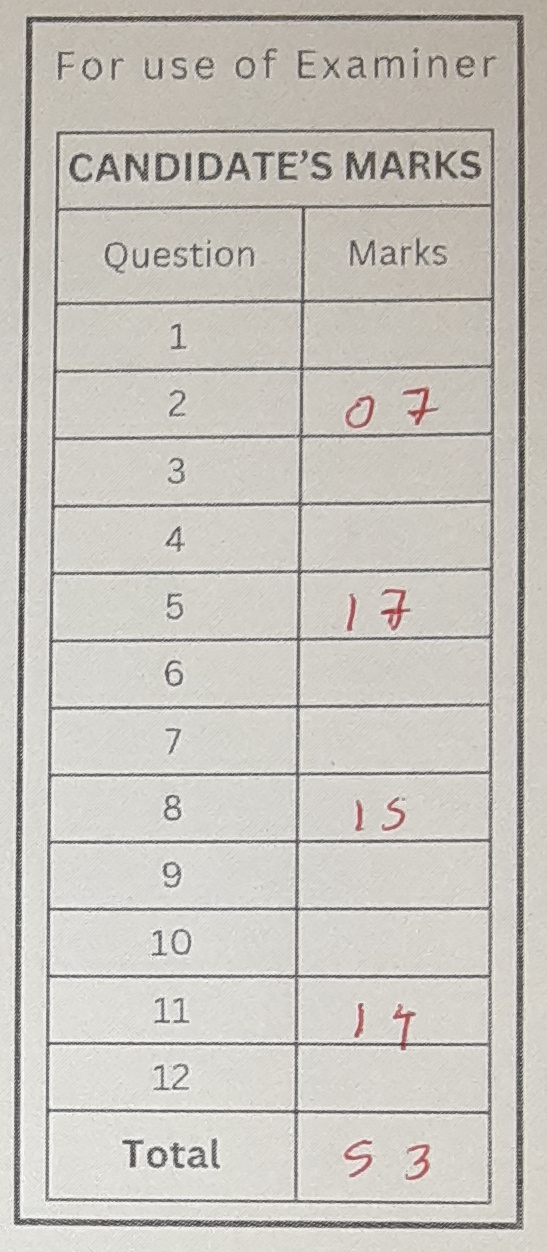 For use of Examiner
CANDIDATE'S MARKS
Question Marks
1
2 07
3
4
5 17
6
7
8 15
9
10
11 14
12
Total 53